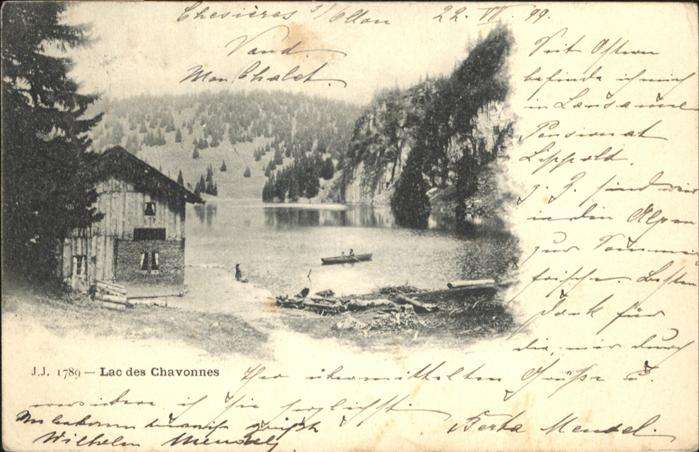 Chesières s/ Ollon 22. VI. 99.
Vaud.
Mon Chalet.
Seit Ostern
befinde ich mich
in Lausanne
Pensionat
Lippold.
z. Z. sind wir
in den Alpen
zur Sommer
frische. Besten
Dank für
die mir durch
J.J. 1789 — Lac des Chavonnes
übermittelten Grüße u.
ich Sie herzlichst
Berta Mendel.
Unbekannterweise grüßt
Wilhelm Mendel